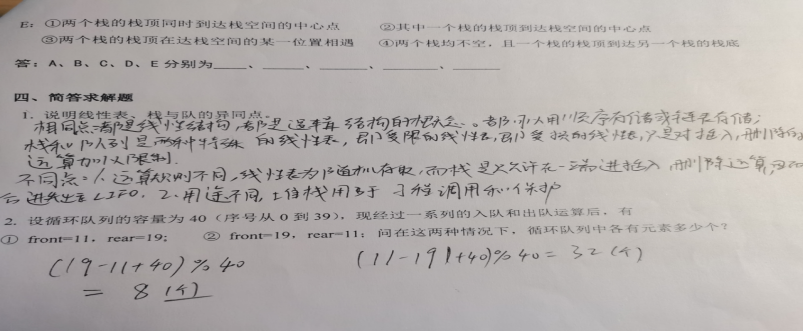 E: ①两个栈的栈顶同时到达栈空间的中心点 ②其中一个栈的栈顶到达栈空间的中心点
③两个栈的栈顶在达栈空间的某一位置相遇 ④两个栈均不空,且一个栈的栈顶到达另一个栈的栈底
答:A、B、C、D、E分别为____、____、____、____、____
四、简答求解题
1. 说明线性表、栈与队的异同点。
相同点:都是线性结构,都是逻辑结构的概念。都可以用顺序存储或链表存储;
栈和队列是两种特殊的线性表,即受限的线性表,只是对插入,删除
运算加以限制.
不同点:1.运算规则不同,线性表为随机存取,而栈是只允许在一端进插入,删除运算,
后进先出LIFO. 2.用途不同,栈用于子程调用和保护
2. 设循环队列的容量为40(序号从0到39),现经过一系列的入队和出队运算后,有
① front=11,rear=19; ② front=19,rear=11;问在这两种情况下,循环队列中各有元素多少个?
(19-11+40)%40 (11-19+40)%40=32(个)
= 8(个)